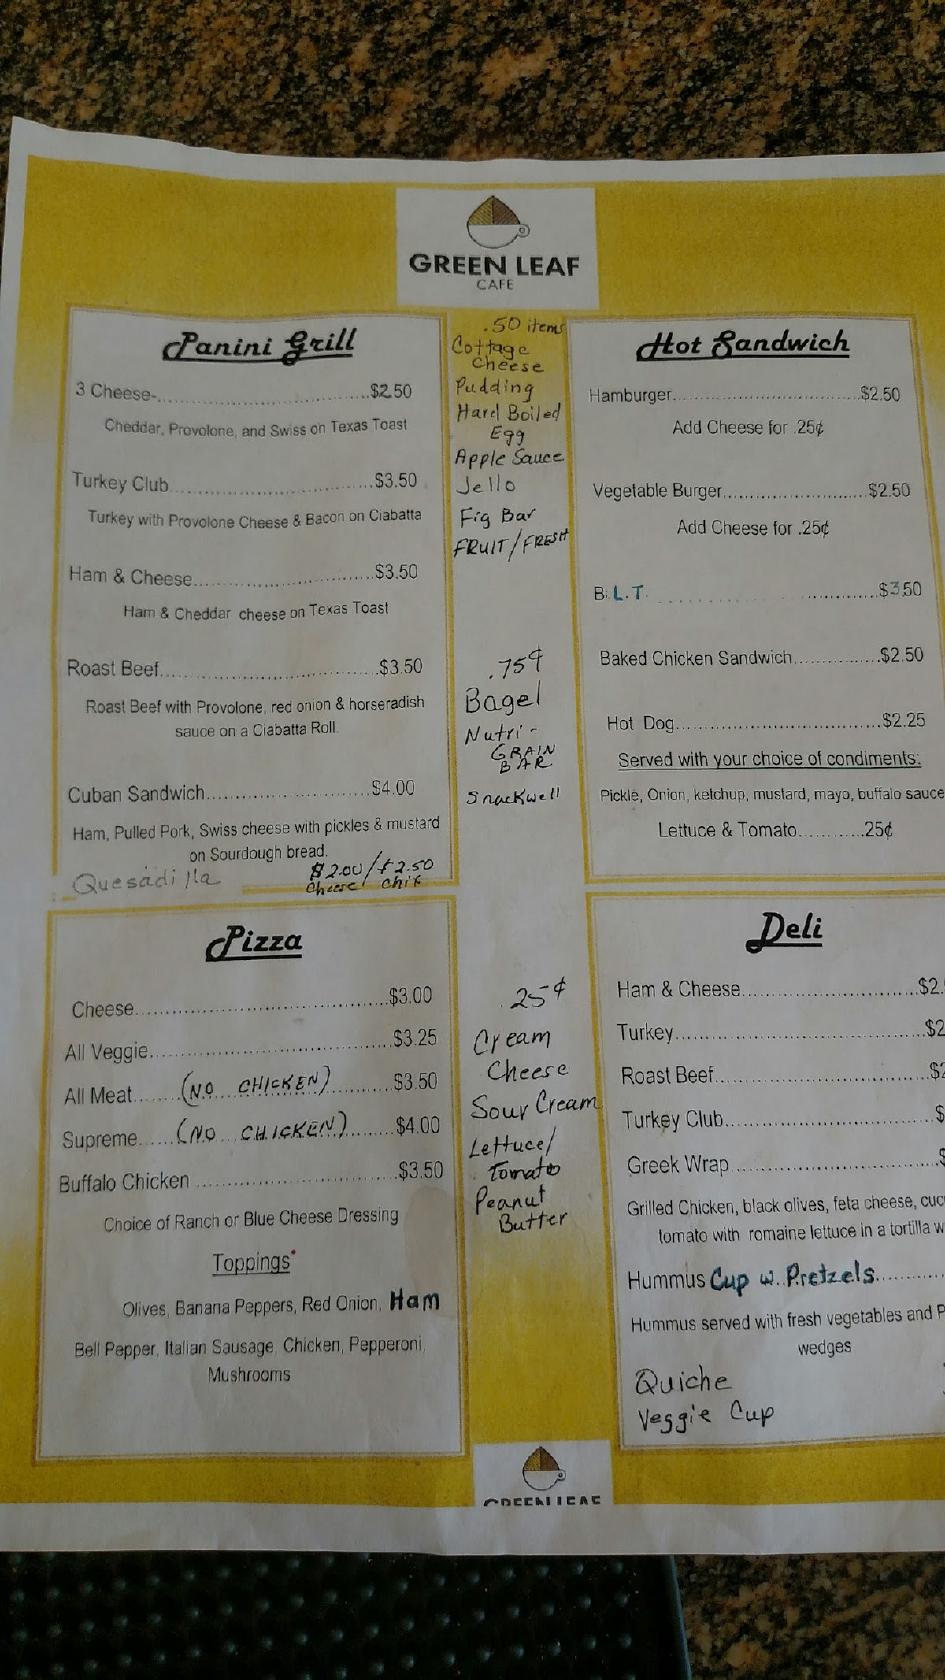 GREEN LEAF
CAFE
Panini Grill
3 Cheese-..............................$2.50
Cheddar, Provolone, and Swiss on Texas Toast
Turkey Club..............................$3.50
Turkey with Provolone Cheese & Bacon on Ciabatta
Ham & Cheese..............................$3.50
Ham & Cheddar cheese on Texas Toast
Roast Beef..............................$3.50
Roast Beef with Provolone, red onion & horseradish
sauce on a Ciabatta Roll.
Cuban Sandwich..............................$4.00
Ham, Pulled Pork, Swiss cheese with pickles & mustard
on Sourdough bread.
Quesadilla $2.00/$2.50
Cheese chix
.50 items
Cottage
Cheese
Pudding
Hard Boiled
Egg
Apple Sauce
Jello
Fig Bar
FRUIT/FRESH
.75¢
Bagel
Nutri-
GRAIN
BAR
Snackwell
Hot Sandwich
Hamburger..............................$2.50
Add Cheese for .25¢
Vegetable Burger..............................$2.50
Add Cheese for .25¢
B.L.T. ..............................$3.50
Baked Chicken Sandwich...............$2.50
Hot Dog..............................$2.25
Served with your choice of condiments:
Pickle, Onion, ketchup, mustard, mayo, buffalo sauce
Lettuce & Tomato...........25¢
Pizza
Cheese..............................$3.00
All Veggie..............................$3.25
All Meat.......(NO CHICKEN).......$3.50
Supreme......(NO CHICKEN).......$4.00
Buffalo Chicken ..............................$3.50
Choice of Ranch or Blue Cheese Dressing
Toppings*
Olives, Banana Peppers, Red Onion, Ham
Bell Pepper, Italian Sausage, Chicken, Pepperoni,
Mushrooms
25¢
Cream
Cheese
Sour Cream
Lettuce/
Tomato
Peanut
Butter
Deli
Ham & Cheese..............................$2.
Turkey..............................$2
Roast Beef..............................$2
Turkey Club..............................$
Greek Wrap ..............................$
Grilled Chicken, black olives, feta cheese, cuc
tomato with romaine lettuce in a tortilla w
Hummus Cup w. Pretzels...........
Hummus served with fresh vegetables and P
wedges
Quiche
Veggie Cup
GREEN LEAF